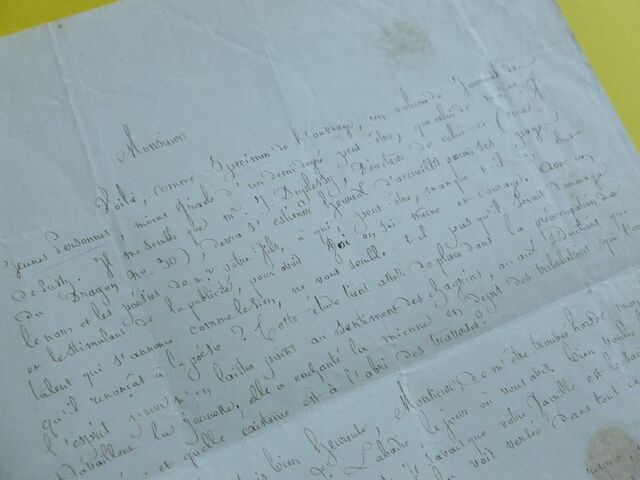 Monsieur
Voilà, comme Specimen de l'ouvrage, un volume du Journal des
Jeunes Personnes moins frivole d'un demi degré peut-être, que celui de
de Passy. Il me semble que Mr J. Duplessy, Directeur de celui-ci (rue
du Dragon no. 30), devra s'estimer heureux d'accueillir parmi ses pages
le nom et les poësies de Mr votre fils, à qui peut-être, manque t-il le but
et le stimulant de la publicité, pour avoir foi en soi-même et courage. Avec un
talent qui s'annonce comme le sien, ne vous semble t-il pas qu'il serait dommage
qu'il renonçât à la poësie? Cette étude tient assez de place dans la préoccupation de
l'esprit pour n'en laisser point au sentiment des chagrins, ou aux séductions qui
travaillent la jeunesse, elle a enchanté la mienne en dépit des tribulations qui
et quelle existence est à l'abri des traverses?
bien heureuse, Monsieur, de m'être trouvée hors de
de Labadie le jour où vous avez bien voulu
je savais que votre famille est le
voit versée dans tout